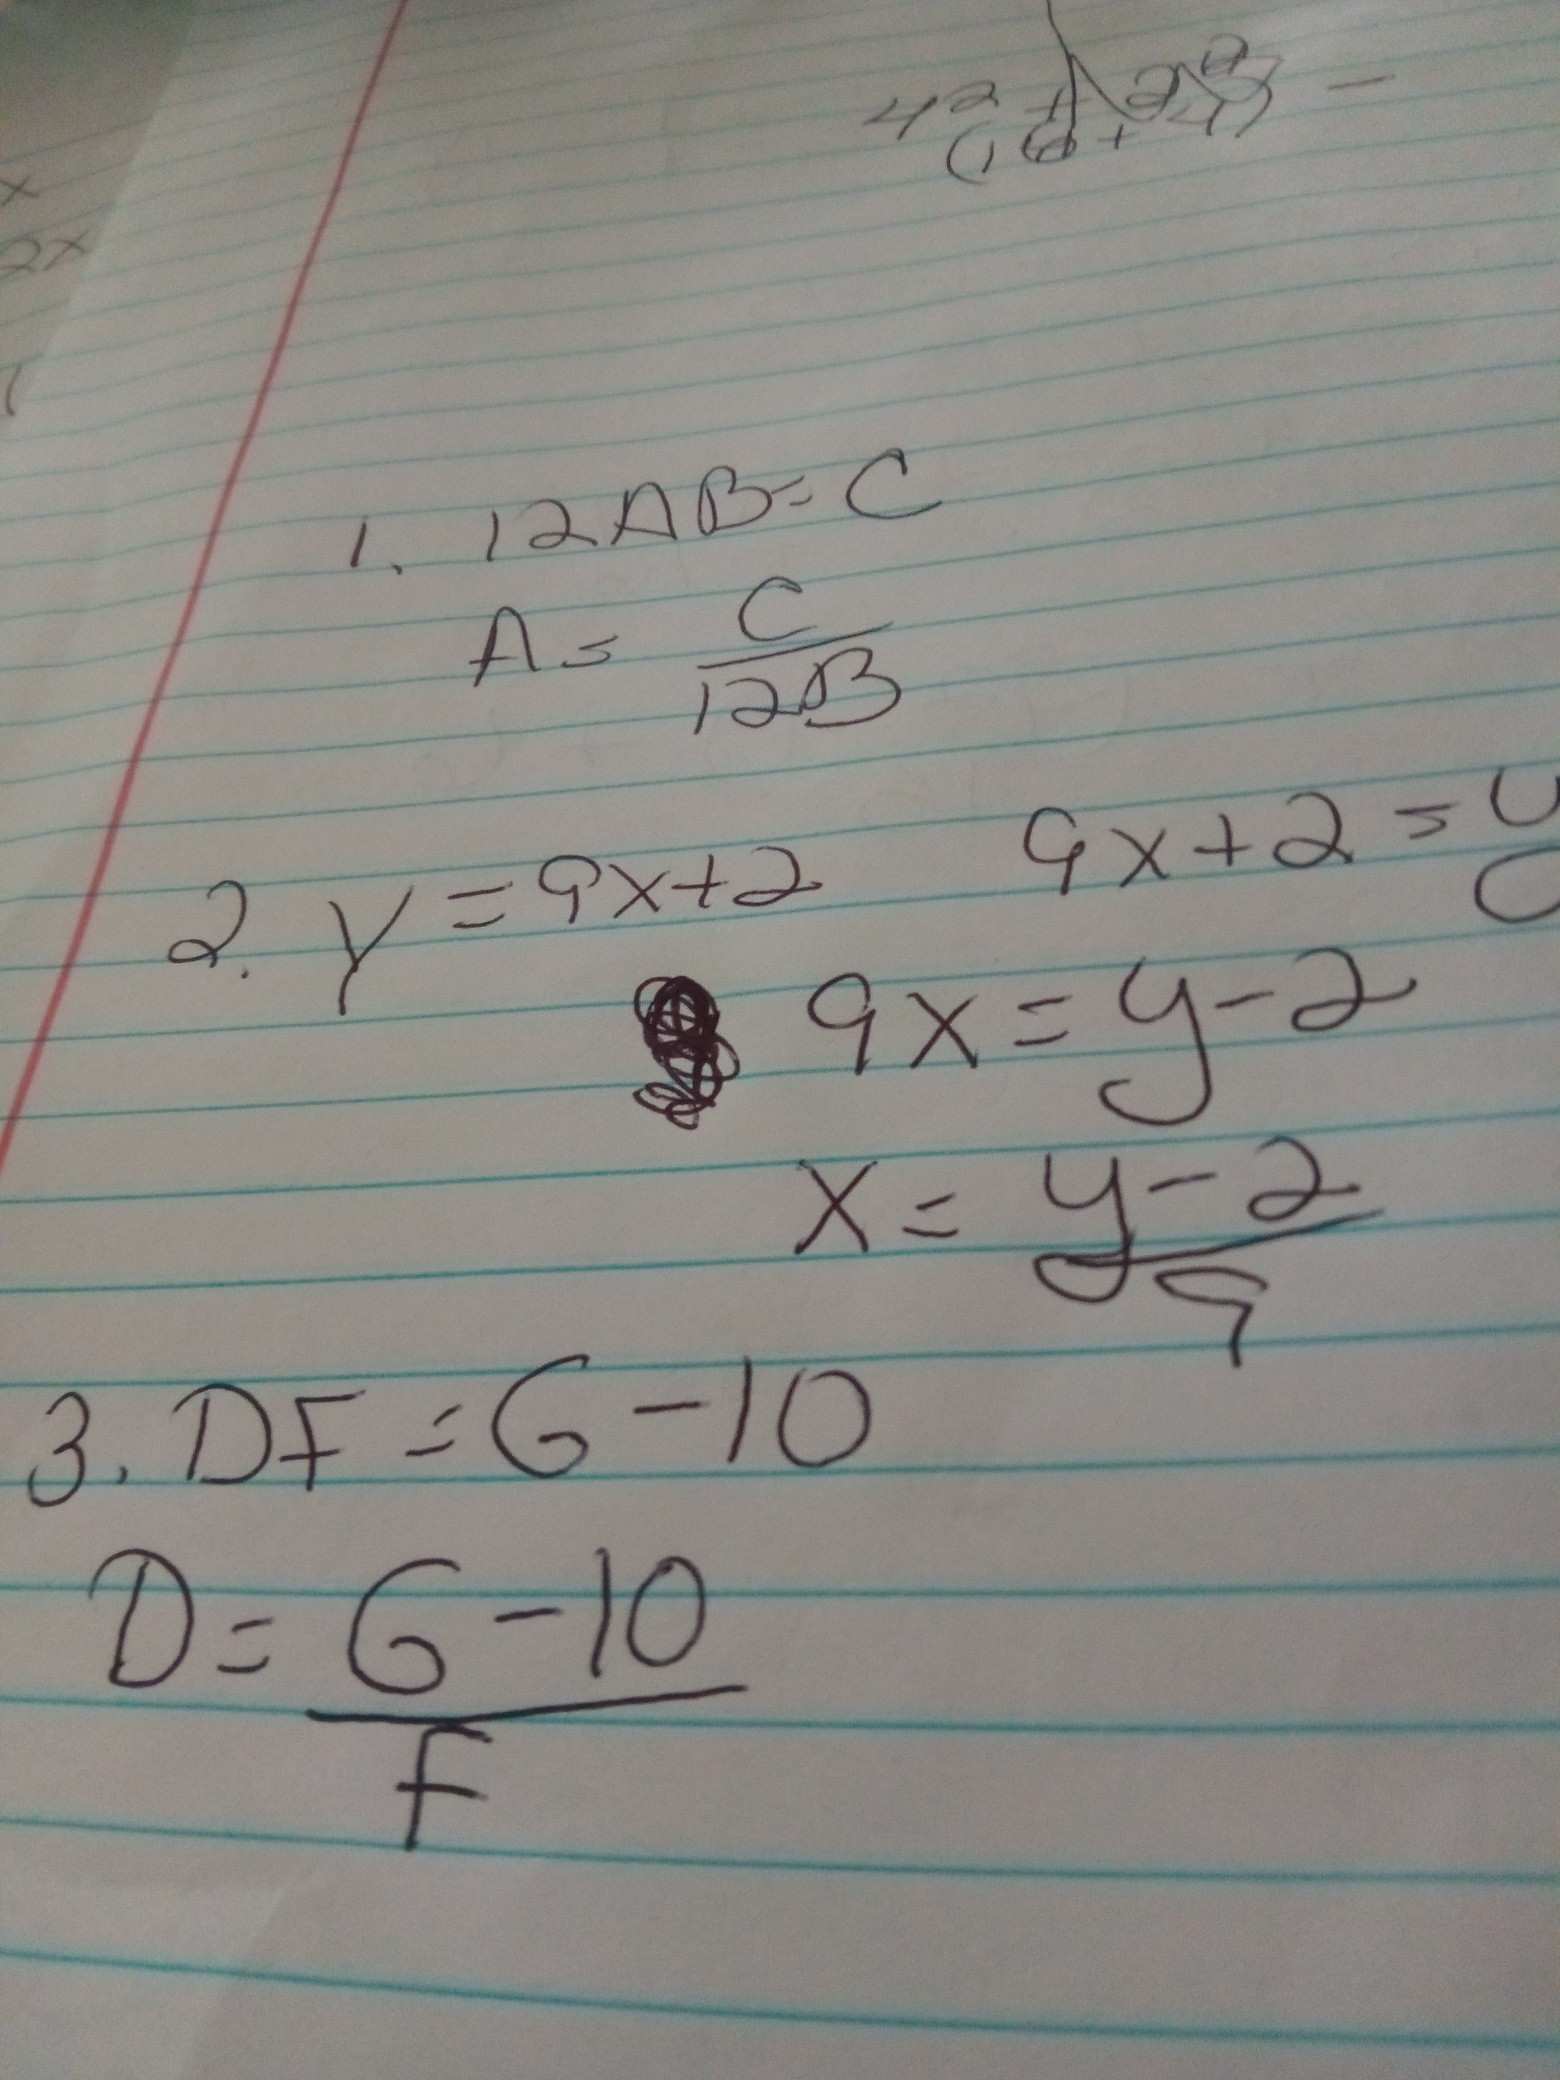 x
2x
1. 12AB = C
A = C
12B
2. Y = 9x+2
9x+2 = y
9x = y-2
x = y-2
9
3. DF = G-10
D = G-10
F